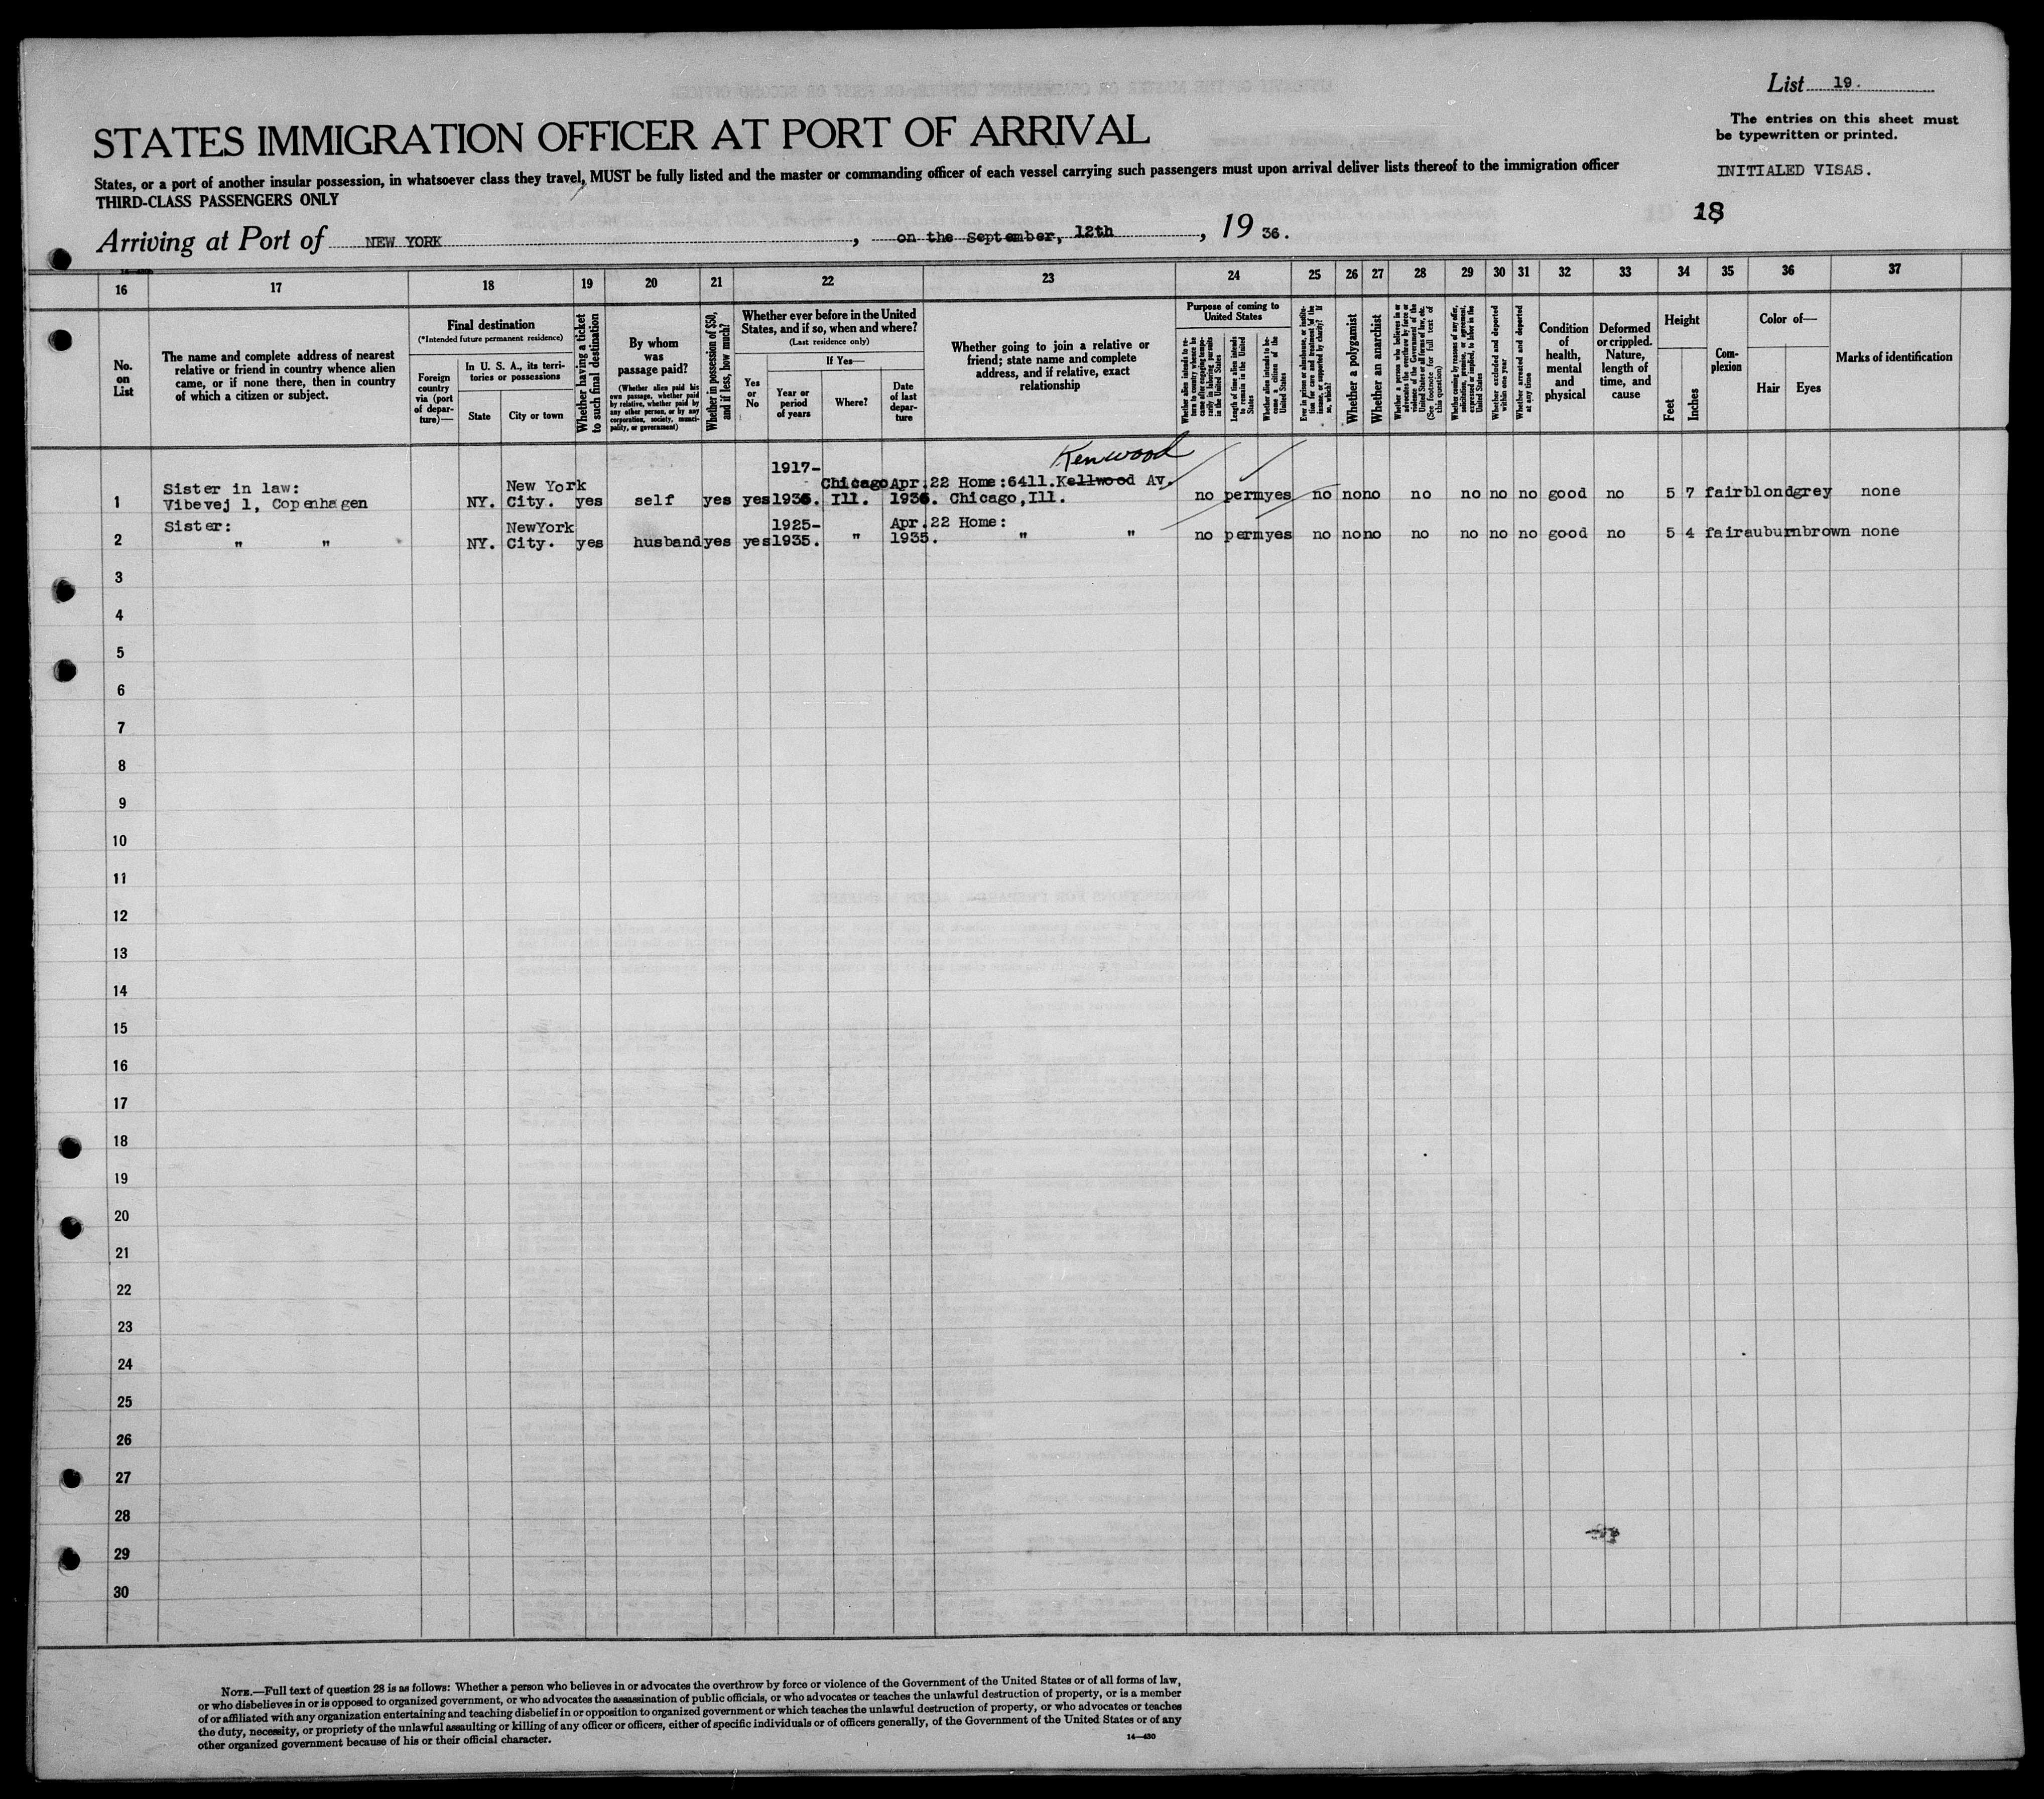 List 19.
The entries on this sheet must
be typewritten or printed.
INITIALED VISAS.
18
STATES IMMIGRATION OFFICER AT PORT OF ARRIVAL
States, or a port of another insular possession, in whatsoever class they travel, MUST be fully listed and the master or commanding officer of each vessel carrying such passengers must upon arrival deliver lists thereof to the immigration officer
THIRD-CLASS PASSENGERS ONLY
Arriving at Port of NEW YORK, on the September, 12th, 19 36.
16 17 18 19 20 21 22 23 24 25 26 27 28 29 30 31 32 33 34 35 36 37
No.
on
List
The name and complete address of nearest
relative or friend in country whence alien
came, or if none there, then in country
of which a citizen or subject.
Final destination
(*Intended future permanent residence)
Foreign
country
via (port
of depar-
ture)—
In U. S. A., its terri-
tories or possessions
State
City or town
Whether having a ticket
to such final destination
By whom
was
passage paid?
(Whether alien paid his
own passage, whether paid
by relative, whether paid by
any other person, or by any
corporation, society, munici-
pality, or government)
Whether in possession of $50,
and if less, how much?
Whether ever before in the United
States, and if so, when and where?
(Last residence only)
Yes
or
No
If Yes—
Year or
period
of years
Where?
Date
of last
depar-
ture
Whether going to join a relative or
friend; state name and complete
address, and if relative, exact
relationship
Purpose of coming to
United States
Whether alien intends to re-
turn to country whence he
came after engaging tempo-
rarily in laboring pursuits
in the United States
Length of time alien intends
to remain in the United
States
Whether alien intends to be-
come a citizen of the
United States
Ever in prison or almshouse, or institu-
tion for care and treatment of the
insane, or supported by charity? If
so, which?
Whether a polygamist
Whether an anarchist
Whether a person who believes in or
advocates the overthrow by force or
violence of the Government of the
United States or all forms of law, etc.
(See footnote for full text of
this question)
Whether coming by reasons of any offer,
solicitation, promise, or agreement,
expressed or implied, to labor in the
United States
Whether excluded and deported
within one year
Whether arrested and deported
at any time
Condition
of
health,
mental
and
physical
Deformed
or crippled.
Nature,
length of
time, and
cause
Height
Feet
Inches
Com-
plexion
Color of—
Hair Eyes
Marks of identification
Kenwood
1917-
Sister in law: New York Chicago Apr.22 Home:6411.Kellwood Av.
1 Vibevej 1, Copenhagen NY. City. yes self yes yes 1936. Ill. 1936. Chicago,Ill. no perm yes no no no no no no no good no 5 7 fair blond grey none
Sister: NewYork 1925- Apr.22 Home:
2 " " NY. City. yes husband yes yes 1935. " 1935. " " no perm yes no no no no no no no good no 5 4 fair auburn brown none
3
4
5
6
7
8
9
10
11
12
13
14
15
16
17
18
19
20
21
22
23
24
25
26
27
28
29
30
NOTE.—Full text of question 28 is as follows: Whether a person who believes in or advocates the overthrow by force or violence of the Government of the United States or of all forms of law,
or who disbelieves in or is opposed to organized government, or who advocates the assassination of public officials, or who advocates or teaches the unlawful destruction of property, or is a member
of or affiliated with any organization entertaining and teaching disbelief in or opposition to organized government or which teaches the unlawful destruction of property, or who advocates or teaches
the duty, necessity, or propriety of the unlawful assaulting or killing of any officer or officers, either of specific individuals or of officers generally, of the Government of the United States or of any
other organized government because of his or their official character.
14—430